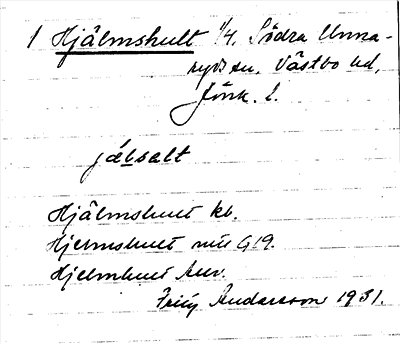 1 Hjälmshult 1/4, Södra Unna-
ryds sn, Västbo hd,
Jönk. l.
jälsalt
Hjälmshult kb.
Hjelmshult G19.
Hjelmhult
Fritz Andersson 1931.